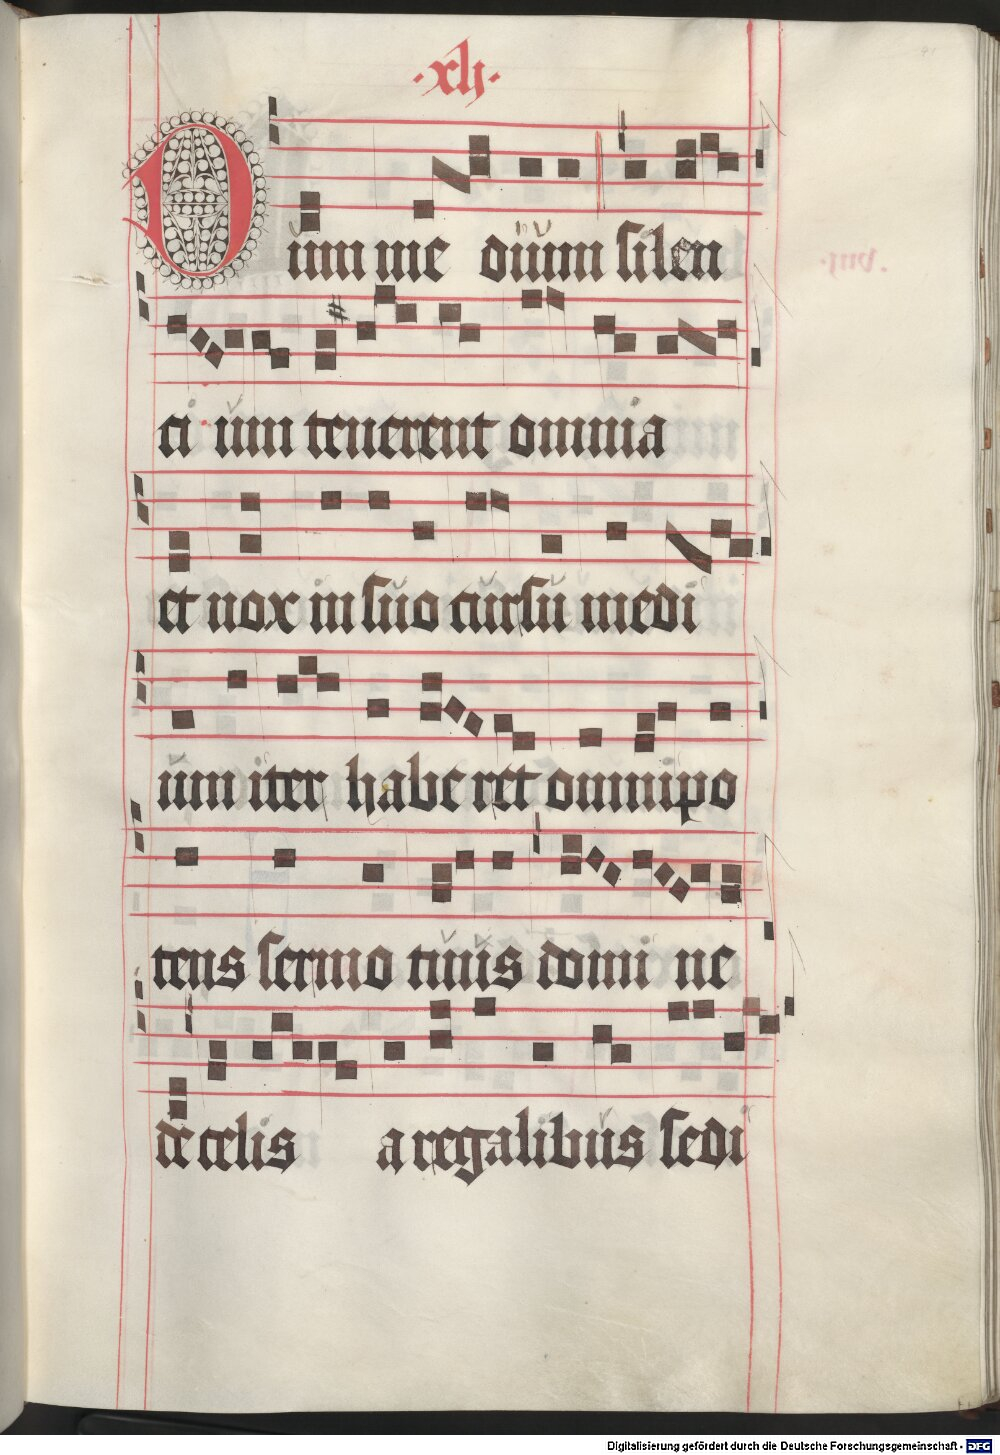 ·xlj·
Dum me dium silen
ci um tenerent omnia
et nox in suo cursu medi
um iter habe ret omnipo
tens sermo tuus domi ne
de celis a regalibus sedi
Digitalisierung gefördert durch die Deutsche Forschungsgemeinschaft - DFG